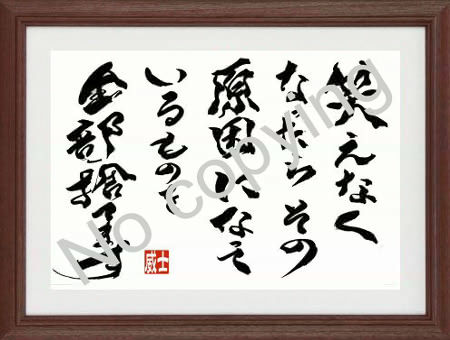 笑えなく
なったら その
原因になって
いるものを
全部捨
威士
No copying